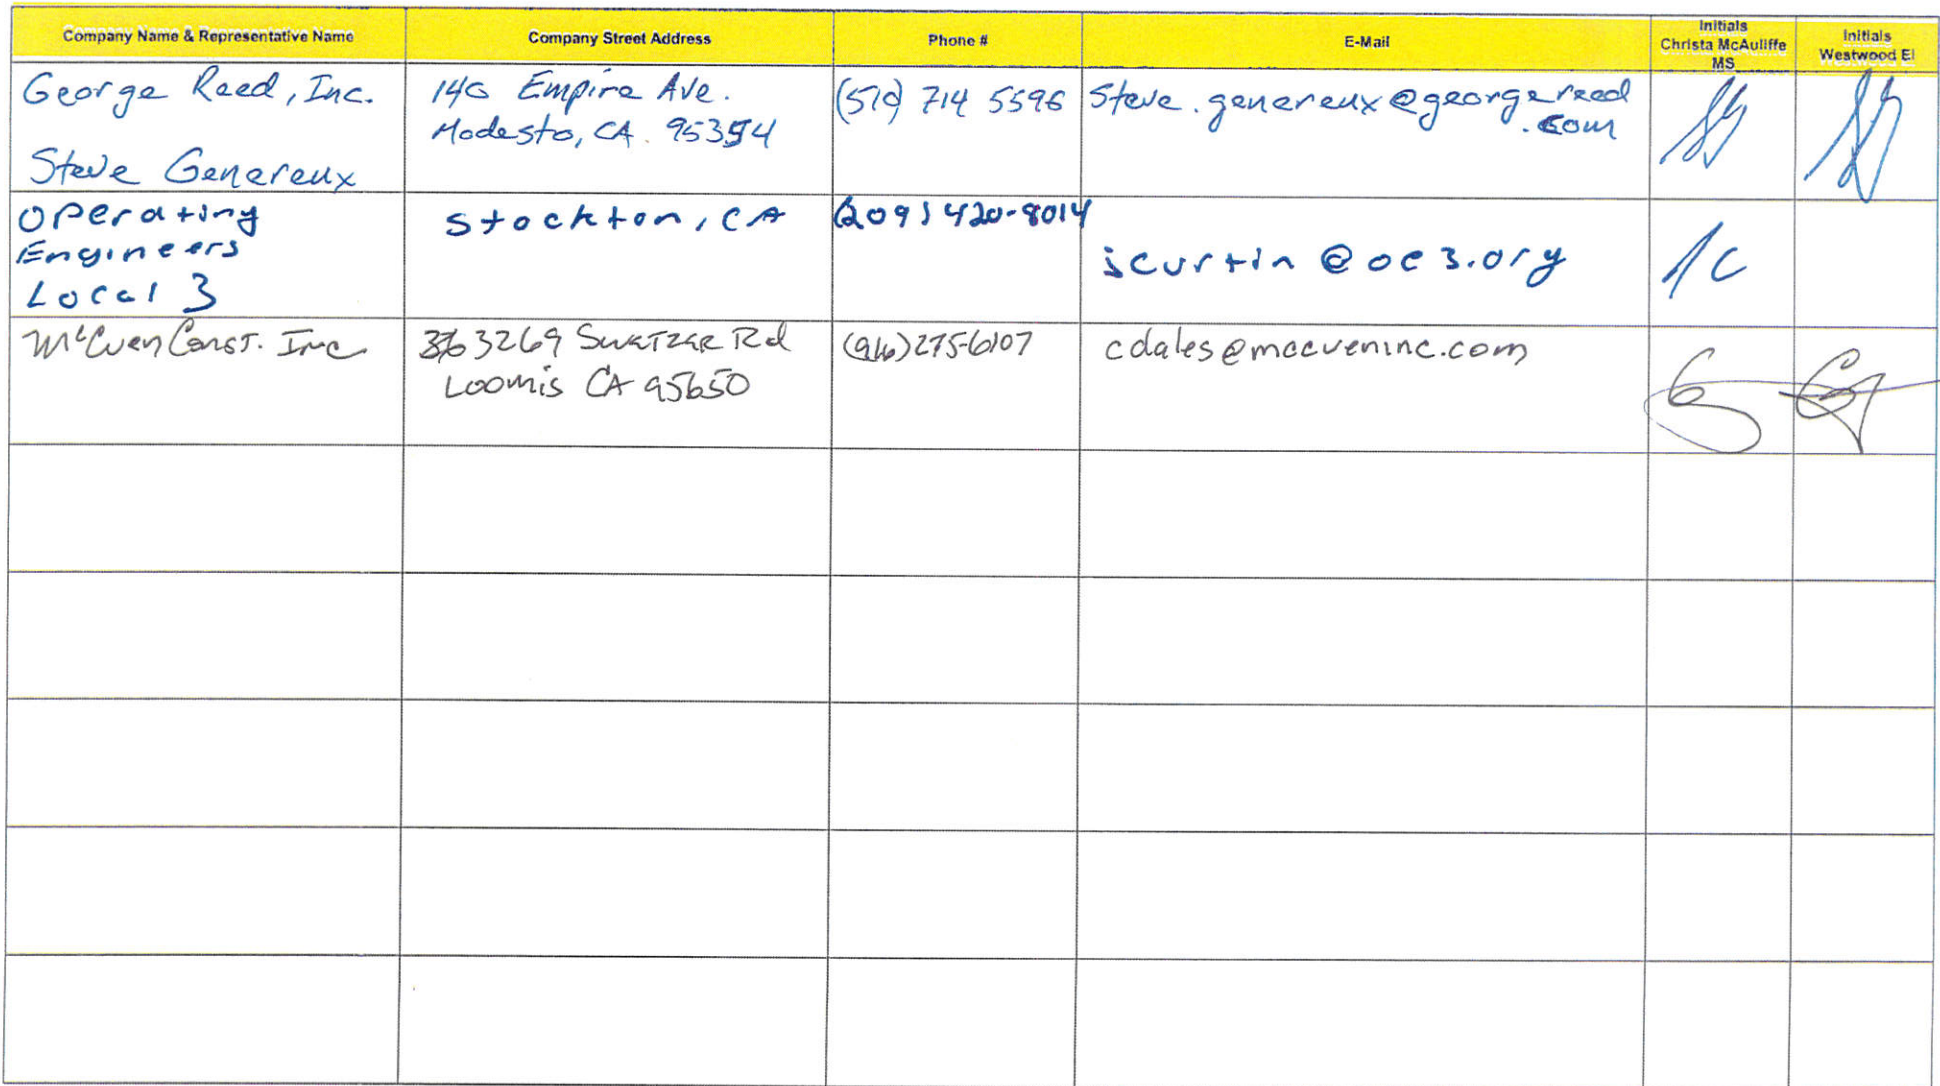 Company Name & Representative Name
Company Street Address
Phone #
E-Mail
Initials
Christa McAuliffe
MS
Initials
Westwood El
George Reed, Inc.
Steve Genereux
140 Empire Ave.
Modesto, CA. 95354
(510) 714 5596
Steve.genereux@georgereed
.com
SG
SG
Operating
Engineers
Local 3
Stockton, CA
(209) 420-8014
icurtin@oe3.org
IC
McCuen Const. Inc
3269 Swetzer Rd
Loomis CA 95650
(916) 275-6107
cdales@mccueninc.com